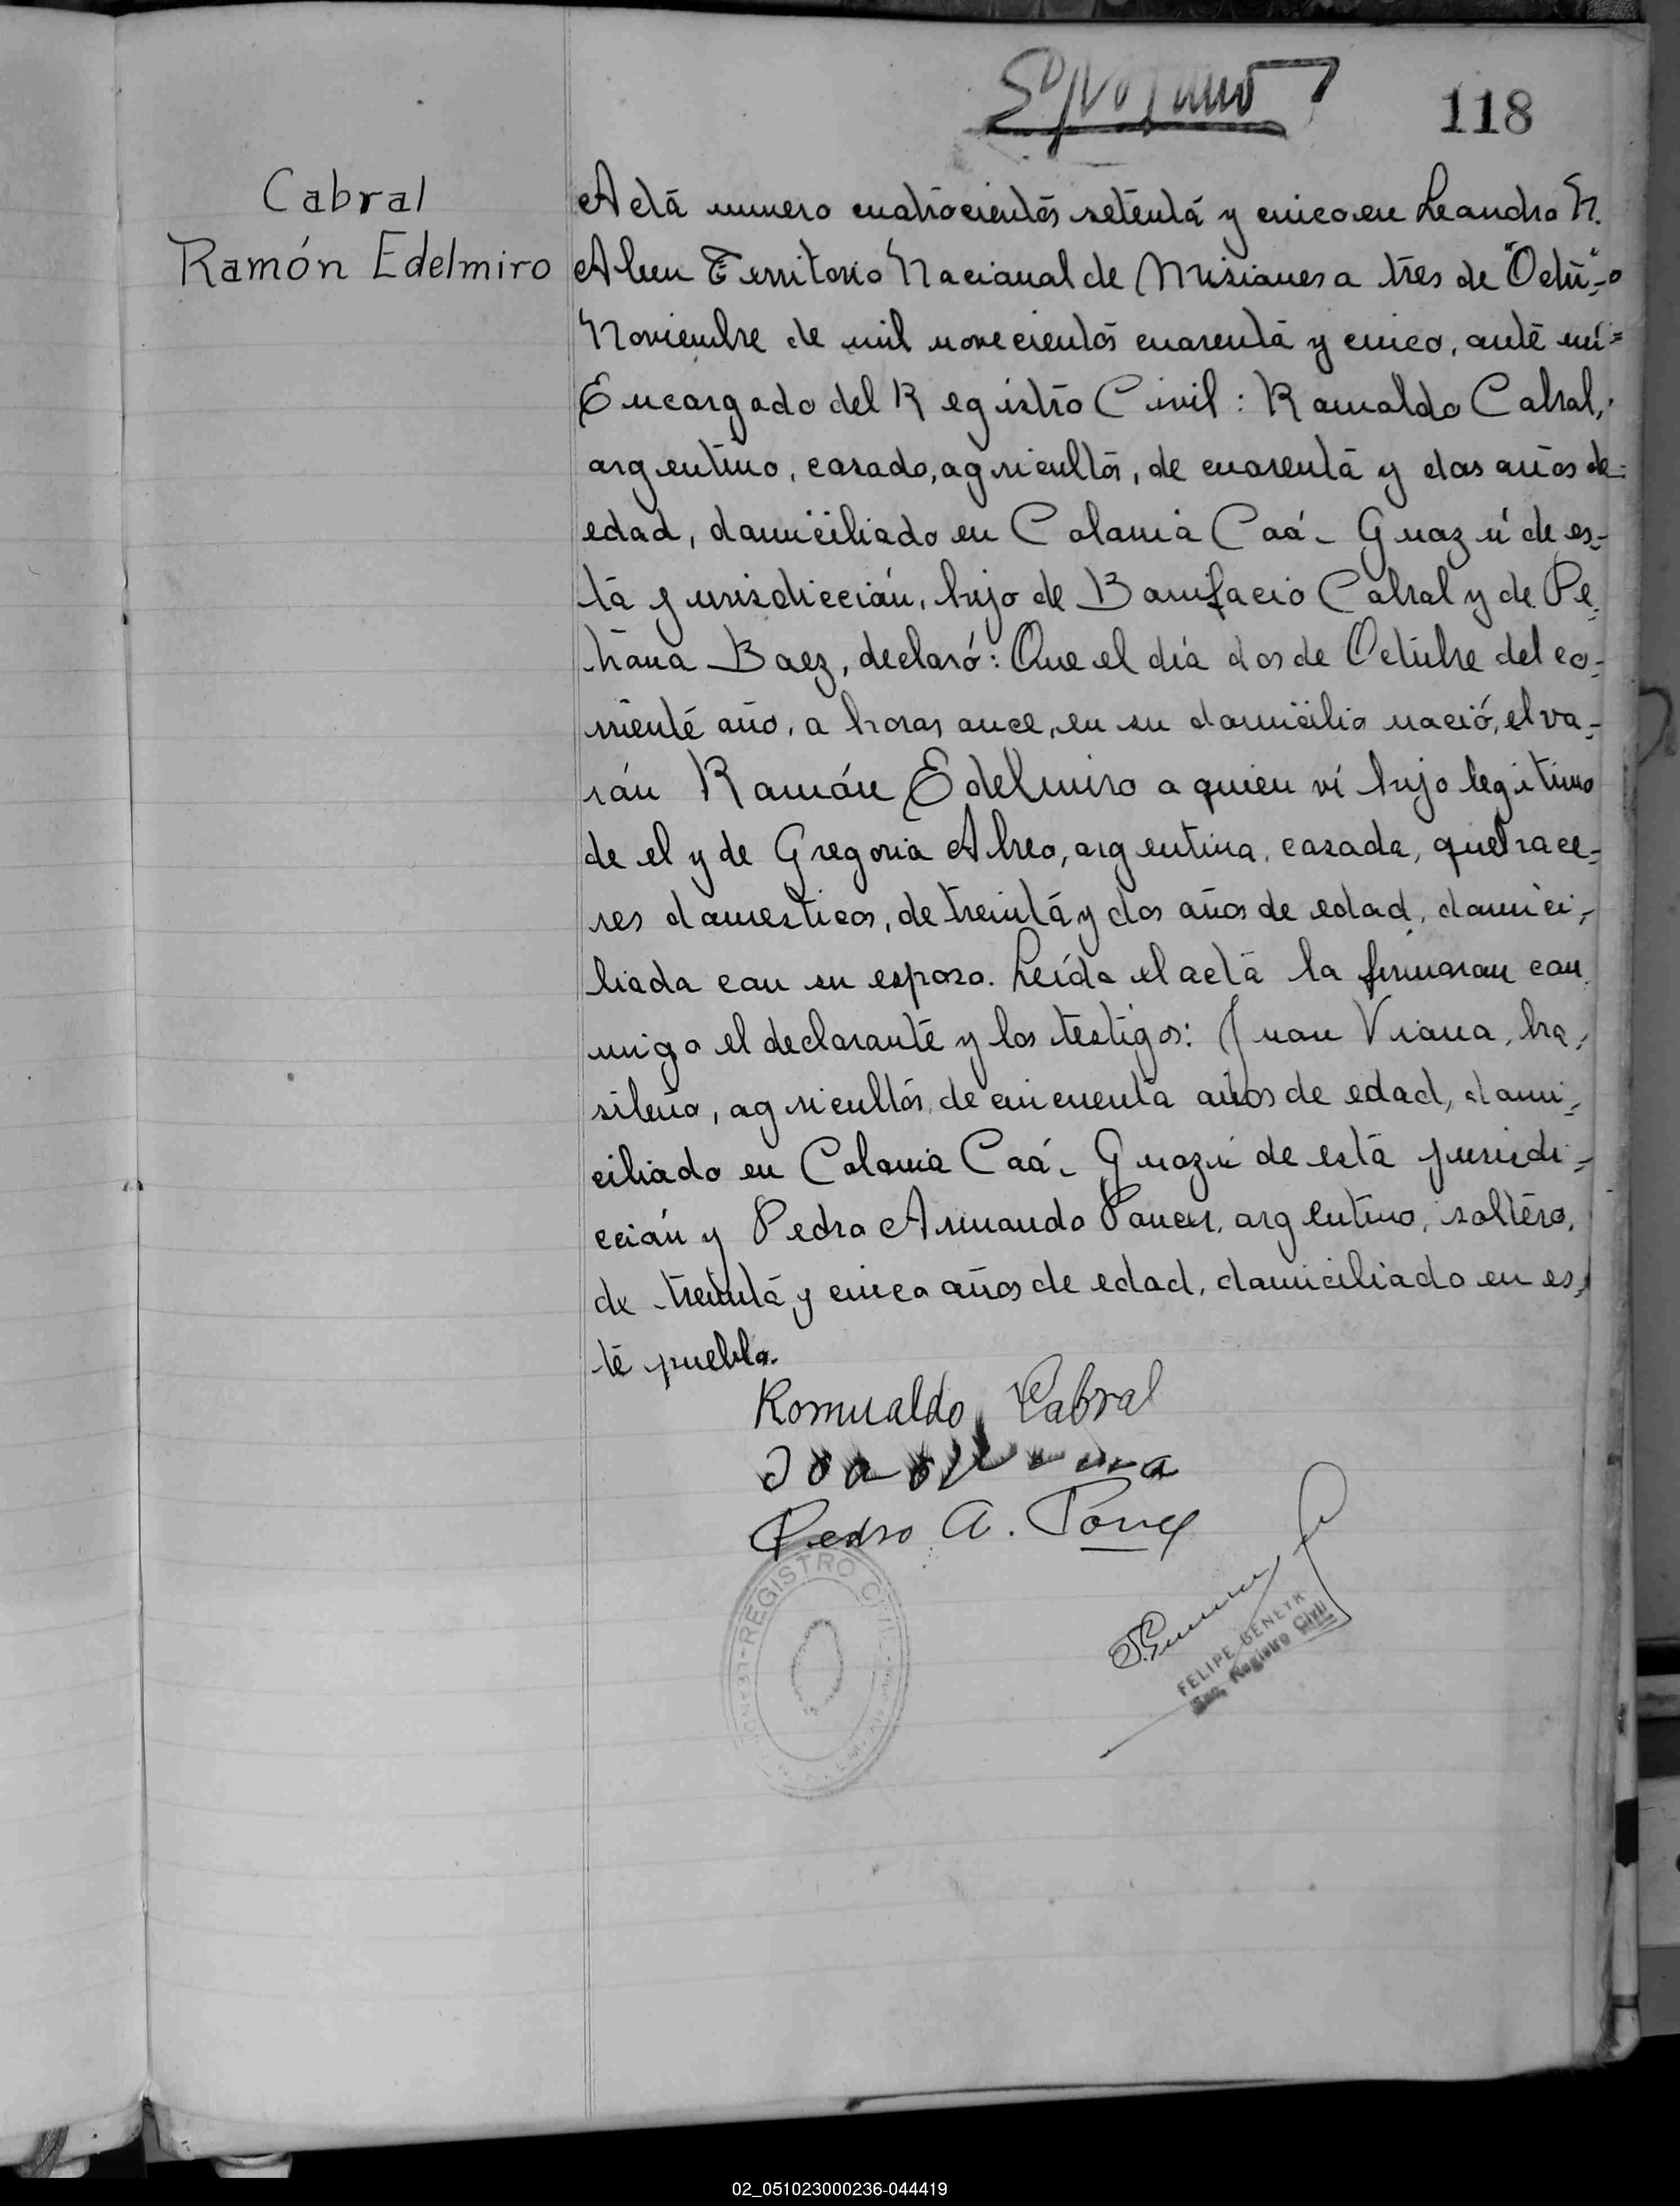 118
Cabral
Ramón Edelmiro
Acta numero cuatrocientos setenta y cinco en Leandro N.
Alem Territorio Nacional de Misiones a tres de "Octu"-
Noviembre de mil novecientos cuarenta y cinco, ante mí=
Encargado del Registro Civil: Romualdo Cabral,
argentino, casado, agricultor, de cuarenta y dos años de
edad, domiciliado en Colonia Caá-Guazú de es-
ta jurisdicción, hijo de Bonifacio Cabral y de Pe-
trona Baez, declaró: Que el día dos de Octubre del co-
rriente año, a horas once, en su domicilio nació, el va-
rón Ramón Edelmiro a quien ví hijo legitimo
de el y de Gregoria Abreo, argentina, casada, quehace-
res domesticos, de treinta y dos años de edad, domici-
liada con su esposo. Leída el acta la firmaron con
migo el declarante y los testigos: Juan Viana, bra-
sileño, agricultor, de cincuenta años de edad, domi-
ciliado en Colonia Caá-Guazú de esta jurisdi-
cción y Pedro Armando , argentino, soltero,
de treinta y cinco años de edad, domiciliado en es-
te pueblo.
Romualdo Cabral
Pedro A.
REGISTRO CIVIL
FELIPE BENEYK
Registro Civil
02_051023000236-044419